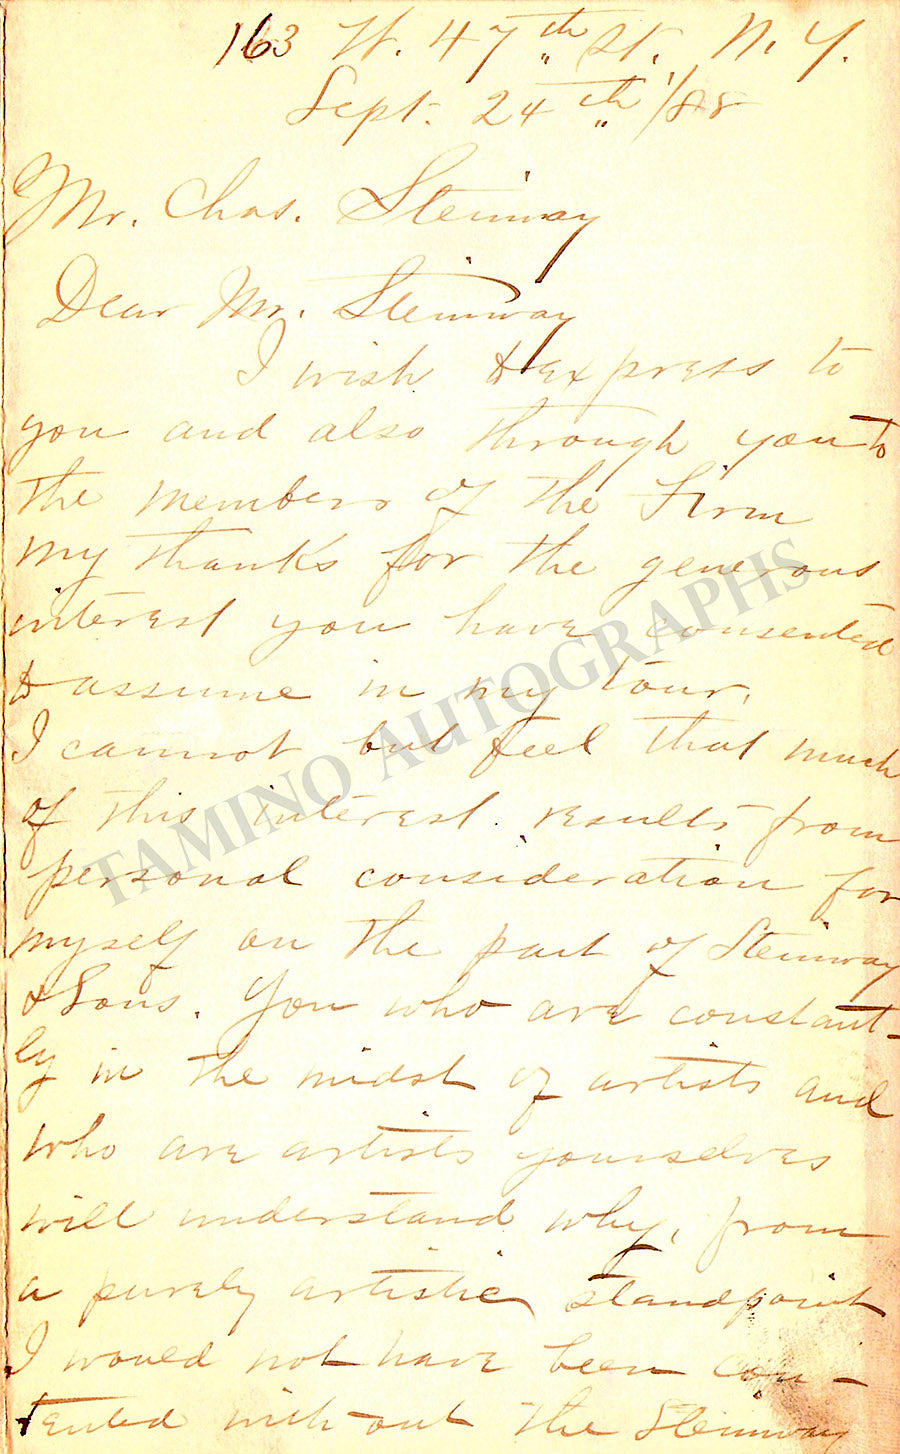 163 W. 47th St. N. Y.
Sept. 24th /88
Mr. Chas. Steinway
Dear Mr. Steinway
I wish to express to
you and also through you to
the members of the Firm
my thanks for the generous
interest you have consented
to assume in my tour.
I cannot but feel that much
of this interest results from
personal consideration for
myself on the part of Steinway
& Sons. You who are constant-
ly in the midst of artists and
who are artists yourselves
will understand why, from
a purely artistic standpoint
I would not have been con-
tented without the Steinway
TAMINO AUTOGRAPHS